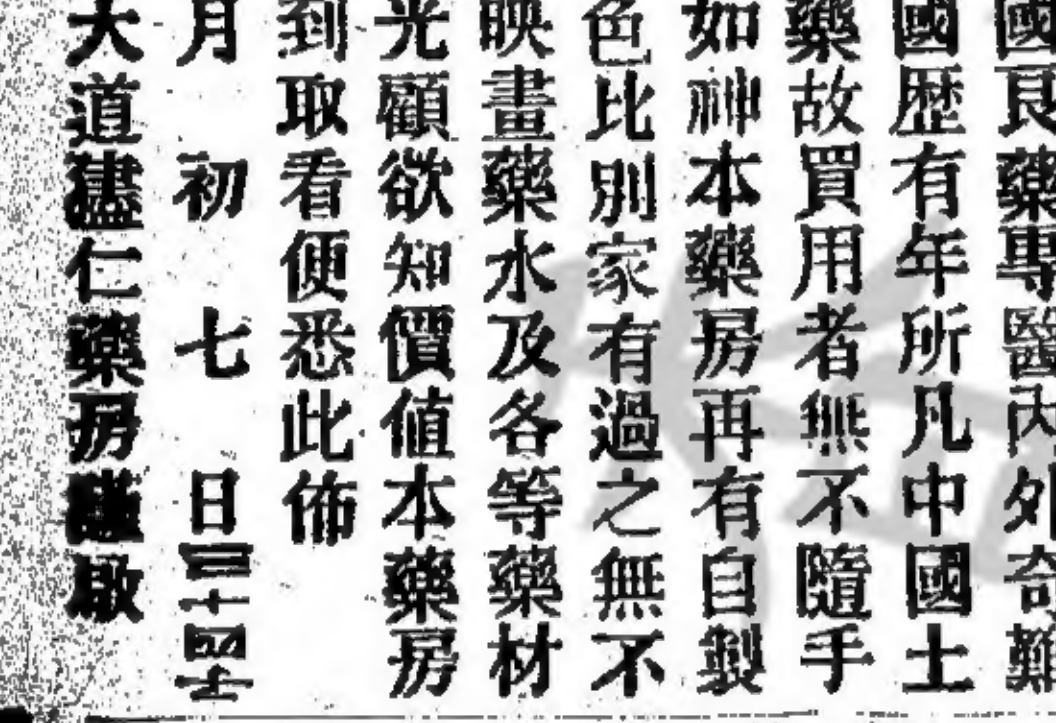 國良藥專醫內外奇難
國歷有年所凡中國土
藥故買用者無不隨手
如神本藥房再有自製
色比別家有過之無不
映畫藥水及各等藥材
光顧欲知價值本藥房
到取看便悉此佈
月初七日
大道盡仁藥房謹啟